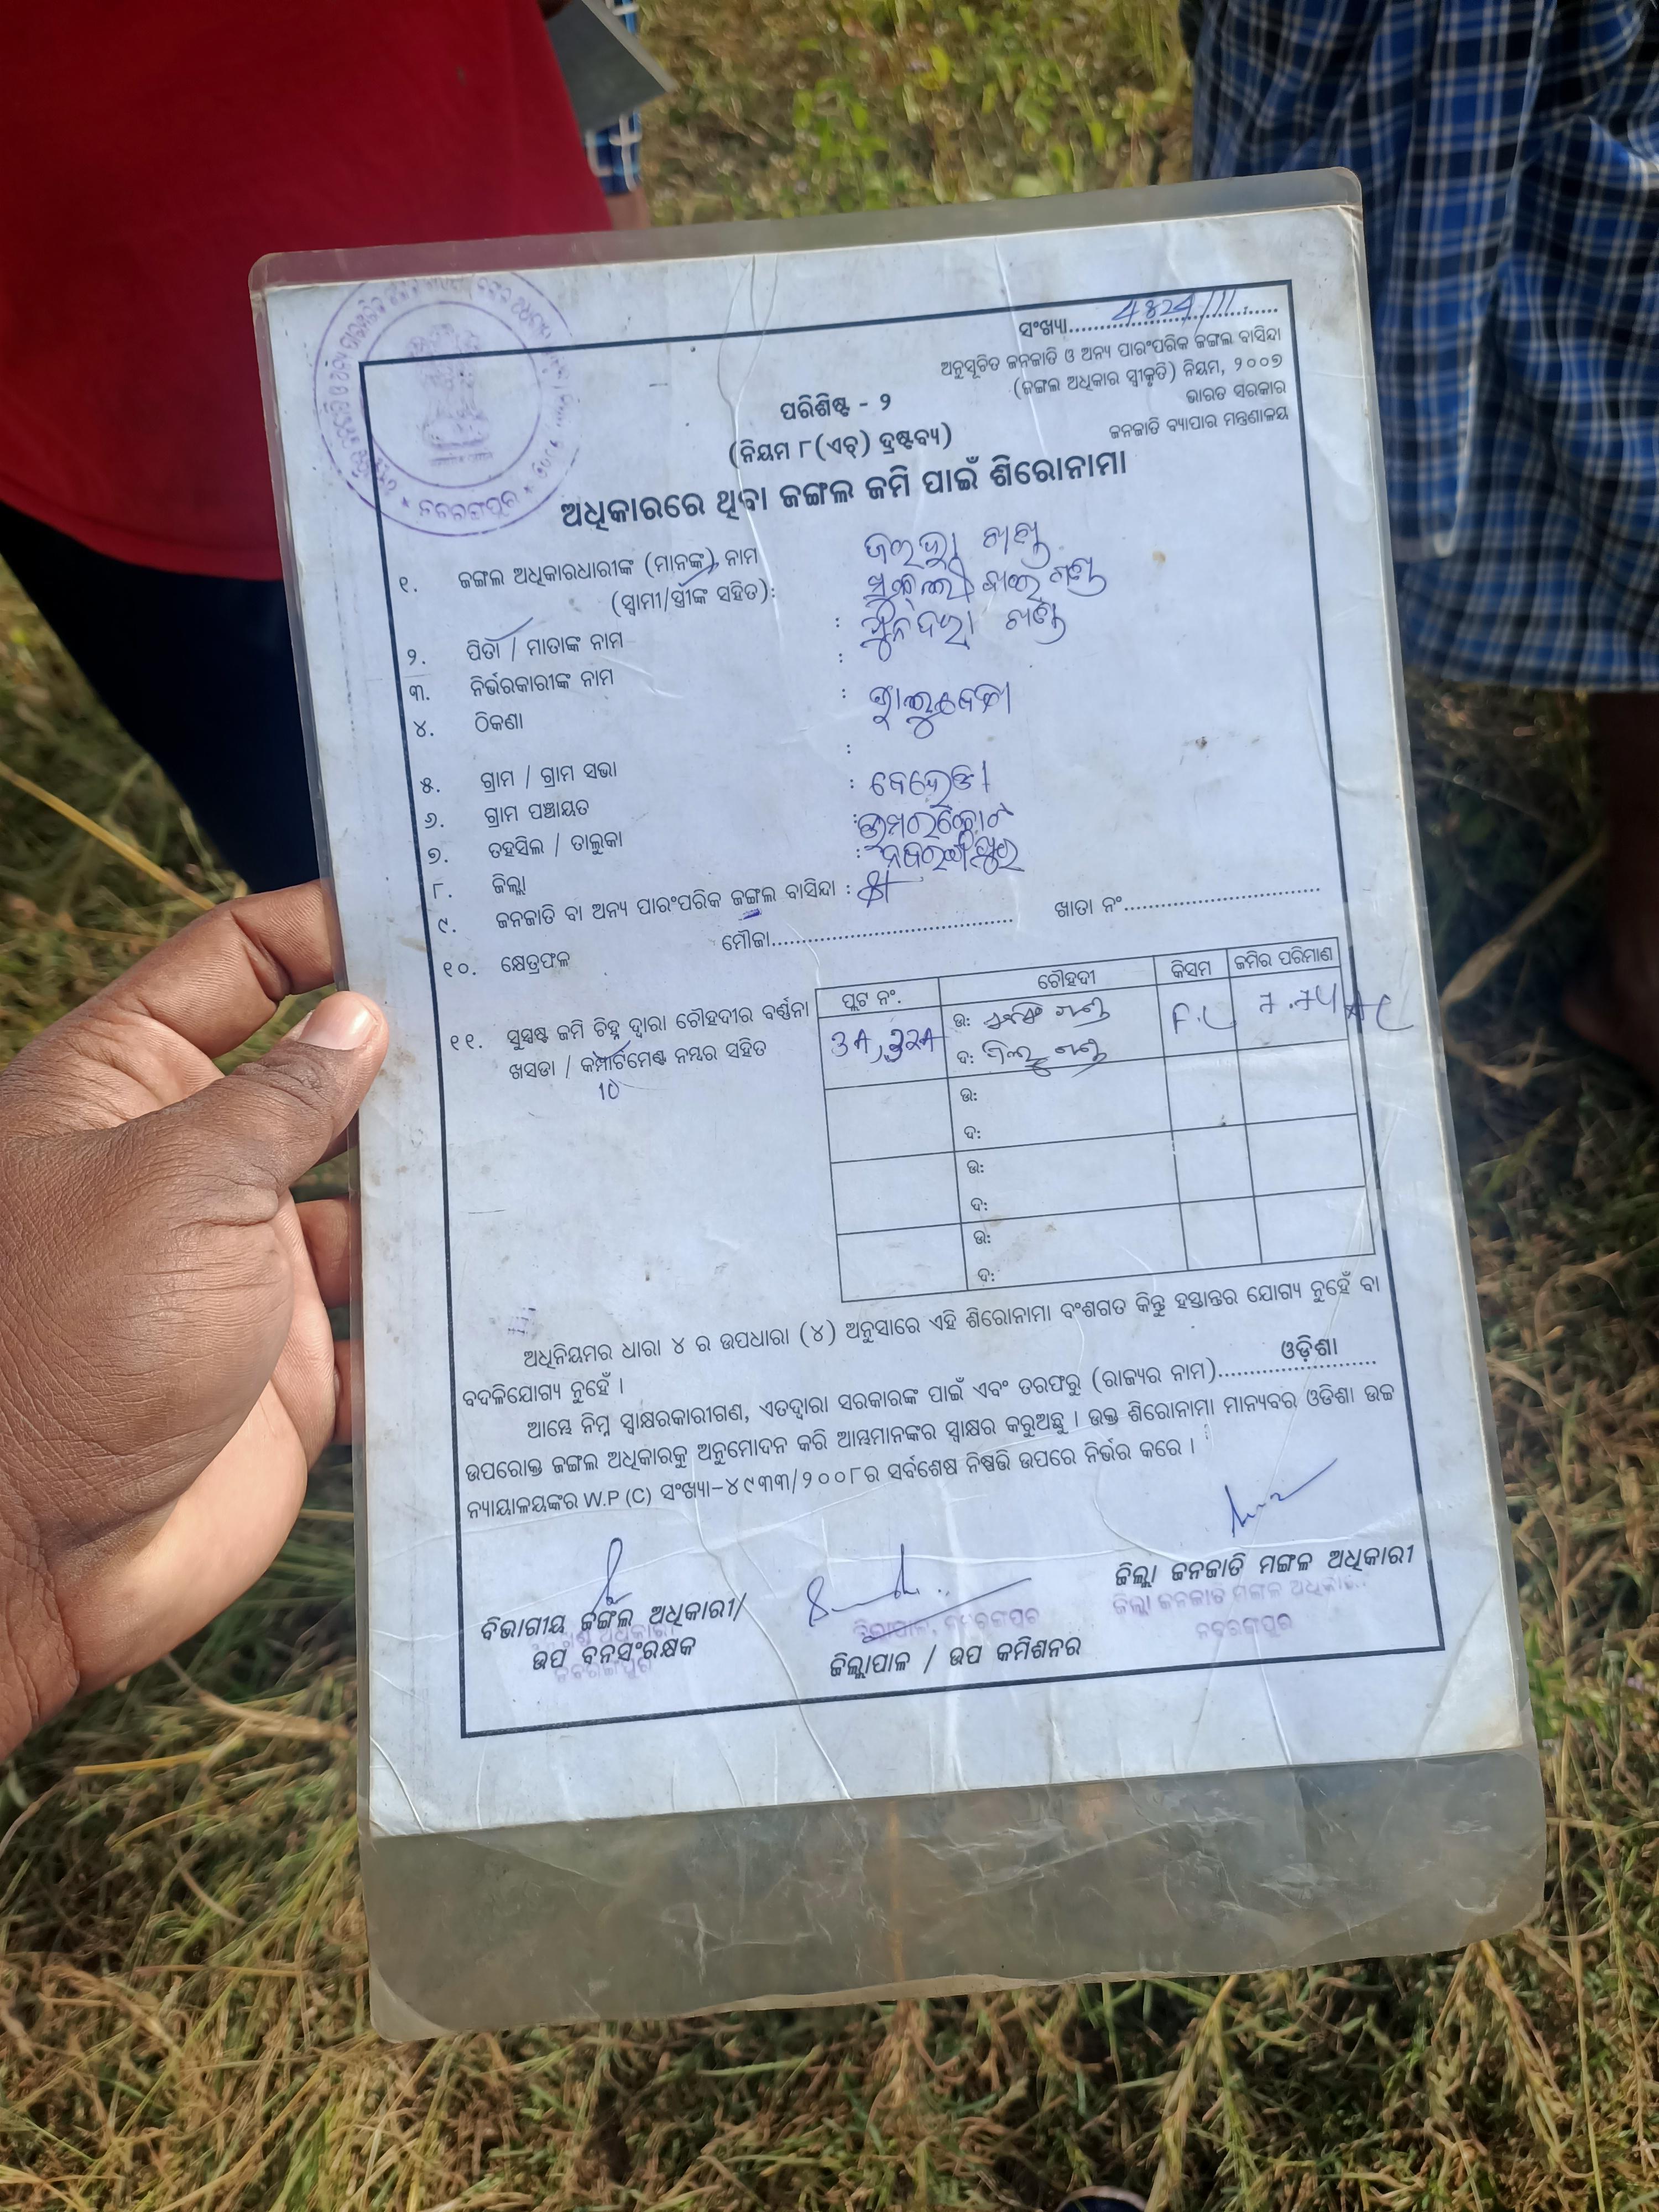 ସଂଖ୍ୟା.......4824/11.......
ଅନୁସୂଚିତ ଜନଜାତି ଓ ଅନ୍ୟ ପାରଂପରିକ ଜଙ୍ଗଲ ବାସିନ୍ଦା
(ଜଙ୍ଗଲ ଅଧିକାର ସ୍ୱୀକୃତି) ନିୟମ, ୨୦୦୭
ଭାରତ ସରକାର
ଜନଜାତି ବ୍ୟାପାର ମନ୍ତ୍ରଣାଳୟ
ପରିଶିଷ୍ଟ - ୨
(ନିୟମ ୮(ଏଚ୍) ଦ୍ରଷ୍ଟବ୍ୟ)
ଅଧିକାରରେ ଥିବା ଜଙ୍ଗଲ ଜମି ପାଇଁ ଶିରୋନାମା
ନବରଙ୍ଗପୁର
୧. ଜଙ୍ଗଲ ଅଧିକାରଧାରୀଙ୍କ (ମାନଙ୍କ) ନାମ
(ସ୍ୱାମୀ/ସ୍ତ୍ରୀଙ୍କ ସହିତ):
୨. ପିତା / ମାତାଙ୍କ ନାମ :
୩. ନିର୍ଭରକାରୀଙ୍କ ନାମ :
୪. ଠିକଣା :
୫. ଗ୍ରାମ / ଗ୍ରାମ ସଭା :
୬. ଗ୍ରାମ ପଞ୍ଚାୟତ : ବେହେଡା
୭. ତହସିଲ / ତାଲୁକା : ଉମରକୋଟ
୮. ଜିଲ୍ଲା : ନବରଙ୍ଗପୁର
୯. ଜନଜାତି ବା ଅନ୍ୟ ପାରଂପରିକ ଜଙ୍ଗଲ ବାସିନ୍ଦା :
୧୦. କ୍ଷେତ୍ରଫଳ ମୌଜା.................... ଖାତା ନଂ....................
୧୧. ସୁସ୍ପଷ୍ଟ ଜମି ଚିହ୍ନ ଦ୍ୱାରା ଚୌହଦୀର ବର୍ଣ୍ଣନା
ଖସଡା / କମ୍ପାର୍ଟମେଣ୍ଟ ନମ୍ବର ସହିତ
10
ପ୍ଲଟ ନଂ. ଚୌହଦୀ କିସମ ଜମିର ପରିମାଣ
3A, 32A ଉ: F.L 7.74 AC
ଦ:
ଉ:
ଦ:
ଉ:
ଦ:
ଉ:
ଦ:
ଅଧିନିୟମର ଧାରା ୪ ର ଉପଧାରା (୪) ଅନୁସାରେ ଏହି ଶିରୋନାମା ବଂଶଗତ କିନ୍ତୁ ହସ୍ତାନ୍ତର ଯୋଗ୍ୟ ନୁହେଁ ବା
ବଦଳିଯୋଗ୍ୟ ନୁହେଁ ।
ଆମ୍ଭେ ନିମ୍ନ ସ୍ୱାକ୍ଷରକାରୀଗଣ, ଏତଦ୍ୱାରା ସରକାରଙ୍କ ପାଇଁ ଏବଂ ତରଫରୁ (ରାଜ୍ୟର ନାମ)......ଓଡ଼ିଶା......
ଉପରୋକ୍ତ ଜଙ୍ଗଲ ଅଧିକାରକୁ ଅନୁମୋଦନ କରି ଆମ୍ଭମାନଙ୍କର ସ୍ୱାକ୍ଷର କରୁଅଛୁ । ଉକ୍ତ ଶିରୋନାମା ମାନ୍ୟବର ଓଡିଶା ଉଚ୍ଚ
ନ୍ୟାୟାଳୟଙ୍କର W.P (C) ସଂଖ୍ୟା-୪୯୩୩/୨୦୦୮ର ସର୍ବଶେଷ ନିଷ୍ପତ୍ତି ଉପରେ ନିର୍ଭର କରେ ।
ବିଭାଗୀୟ ଜଙ୍ଗଲ ଅଧିକାରୀ/
ଉପ ବନସଂରକ୍ଷକ
ନବରଙ୍ଗପୁର
ଜିଲ୍ଲାପାଳ, ନବରଙ୍ଗପୁର
ଜିଲ୍ଲାପାଳ / ଉପ କମିଶନର
ଜିଲ୍ଲା ଜନଜାତି ମଙ୍ଗଳ ଅଧିକାରୀ
ଜିଲ୍ଲା ଜନଜାତି ମଙ୍ଗଳ ଅଧିକାରୀ
ନବରଙ୍ଗପୁର